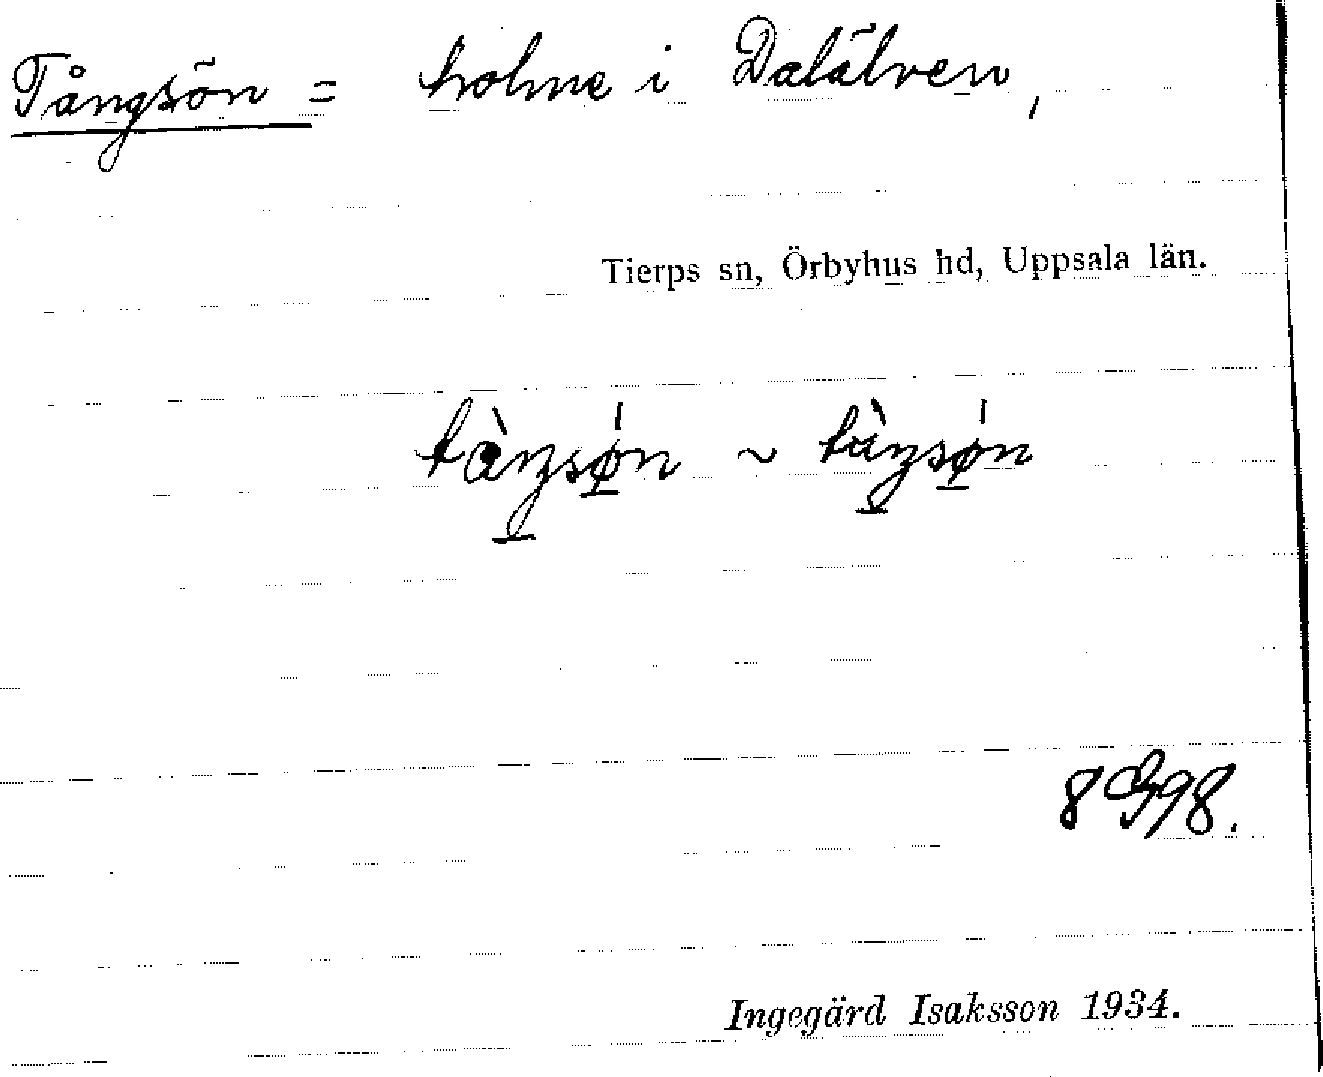 Tångsön = holme i Dalälven,
Tierps sn, Örbyhus hd, Uppsala län.
~
8 G98.
Ingegärd Isaksson 1934.